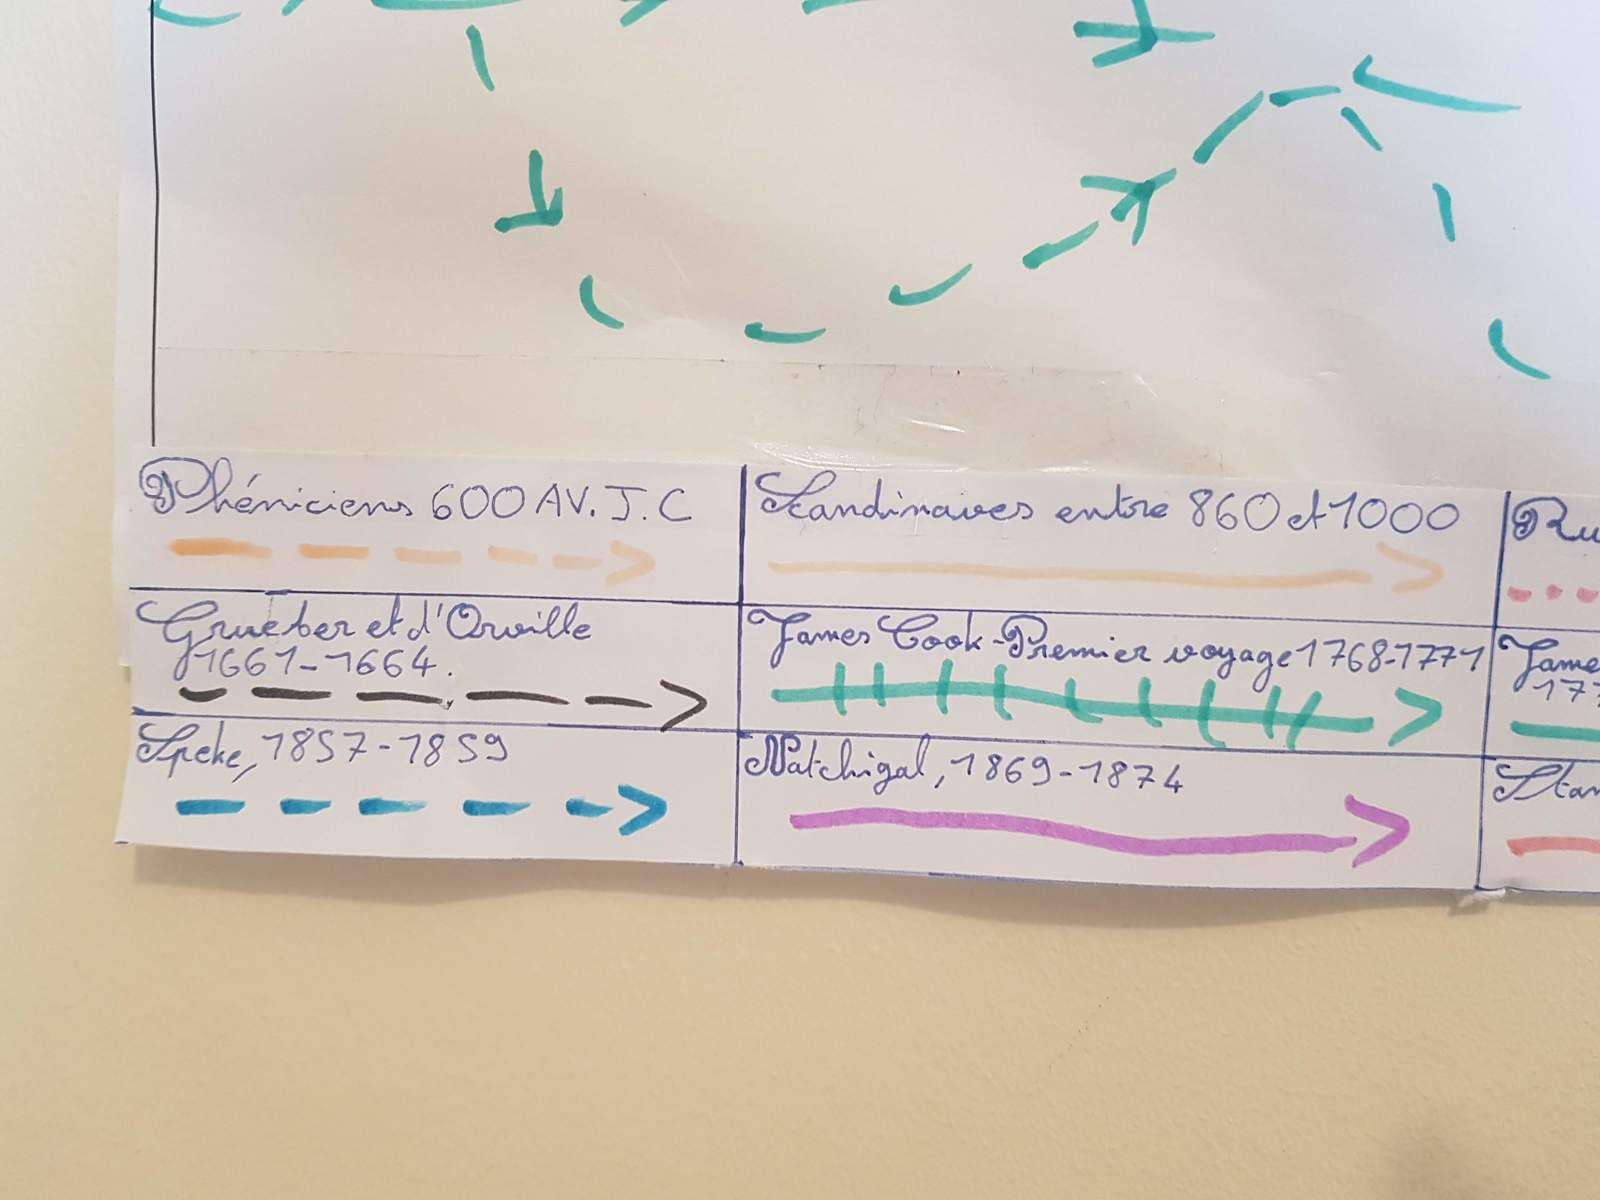 Phéniciens 600 AV. J. C
Scandinaves entre 860 et 1000
Ru
Grueber et d'Orville
1661-1664.
James Cook-Premier voyage 1768-1771
Jame
177
Speke, 1857-1859
Natchigal, 1869-1874
Stan